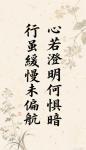 心若澄明何惧暗
行虽緩慢未偏航